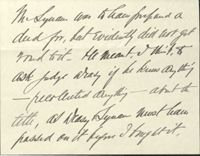 Mr Lyman was to have prepared a
deed for, but evidently did not get
round to it. He meant, I think, to
ask Judge Drary if he knew anything
— recollected anything — about the
title, as Drary & Lyman must have
passed on it before I bought it.